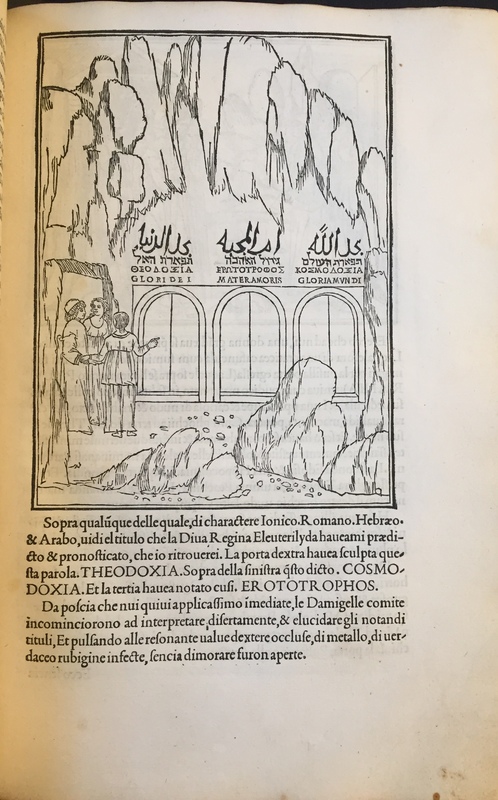 مجد الدنيا ام المحبة مجد الله
תפארת האל גידול האהבה תפארת העולם
ΘΕΟΔΟΞΙΑ ΕΡΩΤΟΤΡΟΦΟΣ ΚΟΣΜΟΔΟΞΙΑ
GLORI DEI MATER AMORIS GLORIA MVNDI
Sopra qualũque delle quale, di charactere Ionico. Romano. Hebræo.
& Arabo, uidi el titulo che la Diua Regina Eleuterilyda haueami prædi-
cto & pronosticato, che io ritrouerei. La porta dextra hauea sculpta que-
sta parola. THEODOXIA. Sopra della sinistra q̃sto dicto. COSMO-
DOXIA. Et la tertia hauea notato cusi. EROTOTROPHOS.
Da poscia che nui quiui applicassimo ĩmediate, le Damigelle comite
incominciorono ad interpretare, disertamente, & elucidare gli notandi
tituli, Et pulsando alle resonante ualue dextere occluse, di metallo, di uer-
daceo rubigine infecte, sencia dimorare furon aperte.